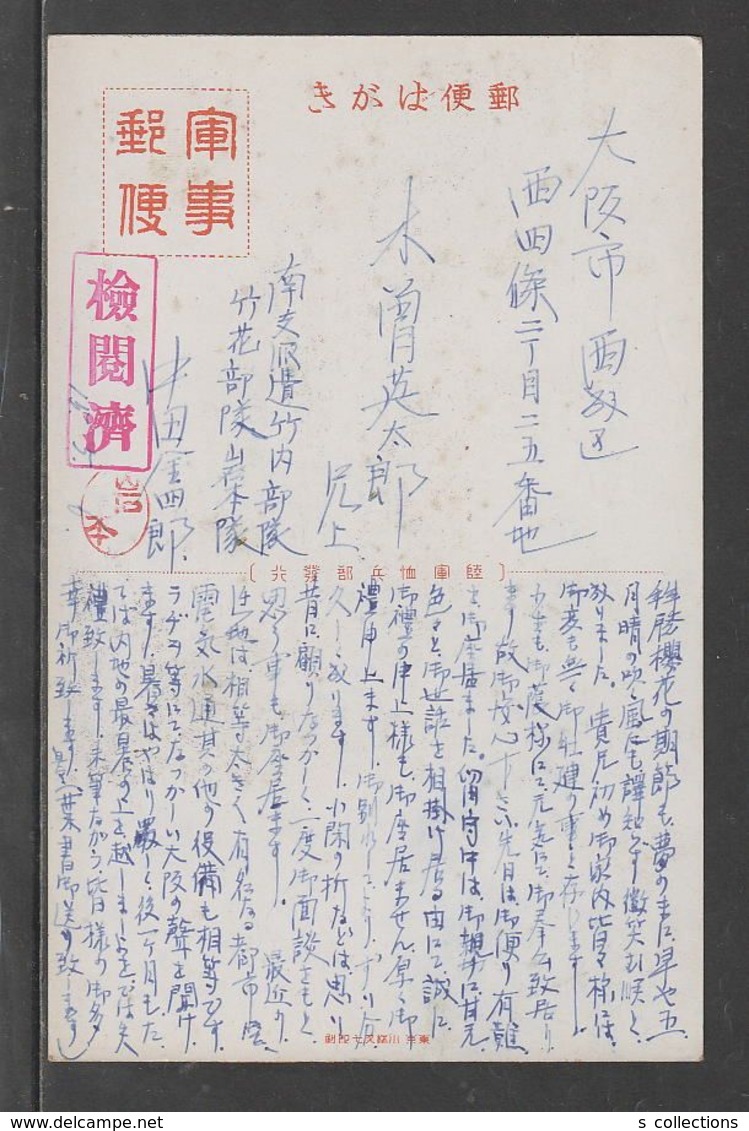 郵便はがき
軍事
郵便
檢閱濟
岩本
大阪市西
西四條二丁目二五番地
木曽英太郎
兄上
南支派遣竹内部隊
竹花部隊岩本隊
中田金四郎
〔陸軍恤兵部發行〕
櫻花の期節も夢のまに早や五
月晴の吹く風にも 微笑む順と
なりました。貴兄初め御家内皆々様には
御変も無く御壮健の事と存じます
小生も御蔭様にて元気にて御奉公致居り
ます故御安心下さい先日は御便り有難
う御座居ました。留守中は御親 に
色々と御世話を相掛け居る由にて誠に
御禮の申上様も御座居ません厚く御
禮申上ます。御別れしてより
久しくなります。小閑の折などは思い
昔に顧りなつかしく一度御面談をもと
思う事も御座居ます。 最近
此地は相等大きく有名なる都市
電気水道其の他の設備も相等です
ラヂヲ等にてなつかしい大阪の聲を聞け
ます。暑さはやはり 後一ヶ月も
ては内地の最暑の上を越しま
禮致します。末筆ながら皆様の御多
幸御祈致します 葉書御送り致します
東京 小 又七印刷
s collections